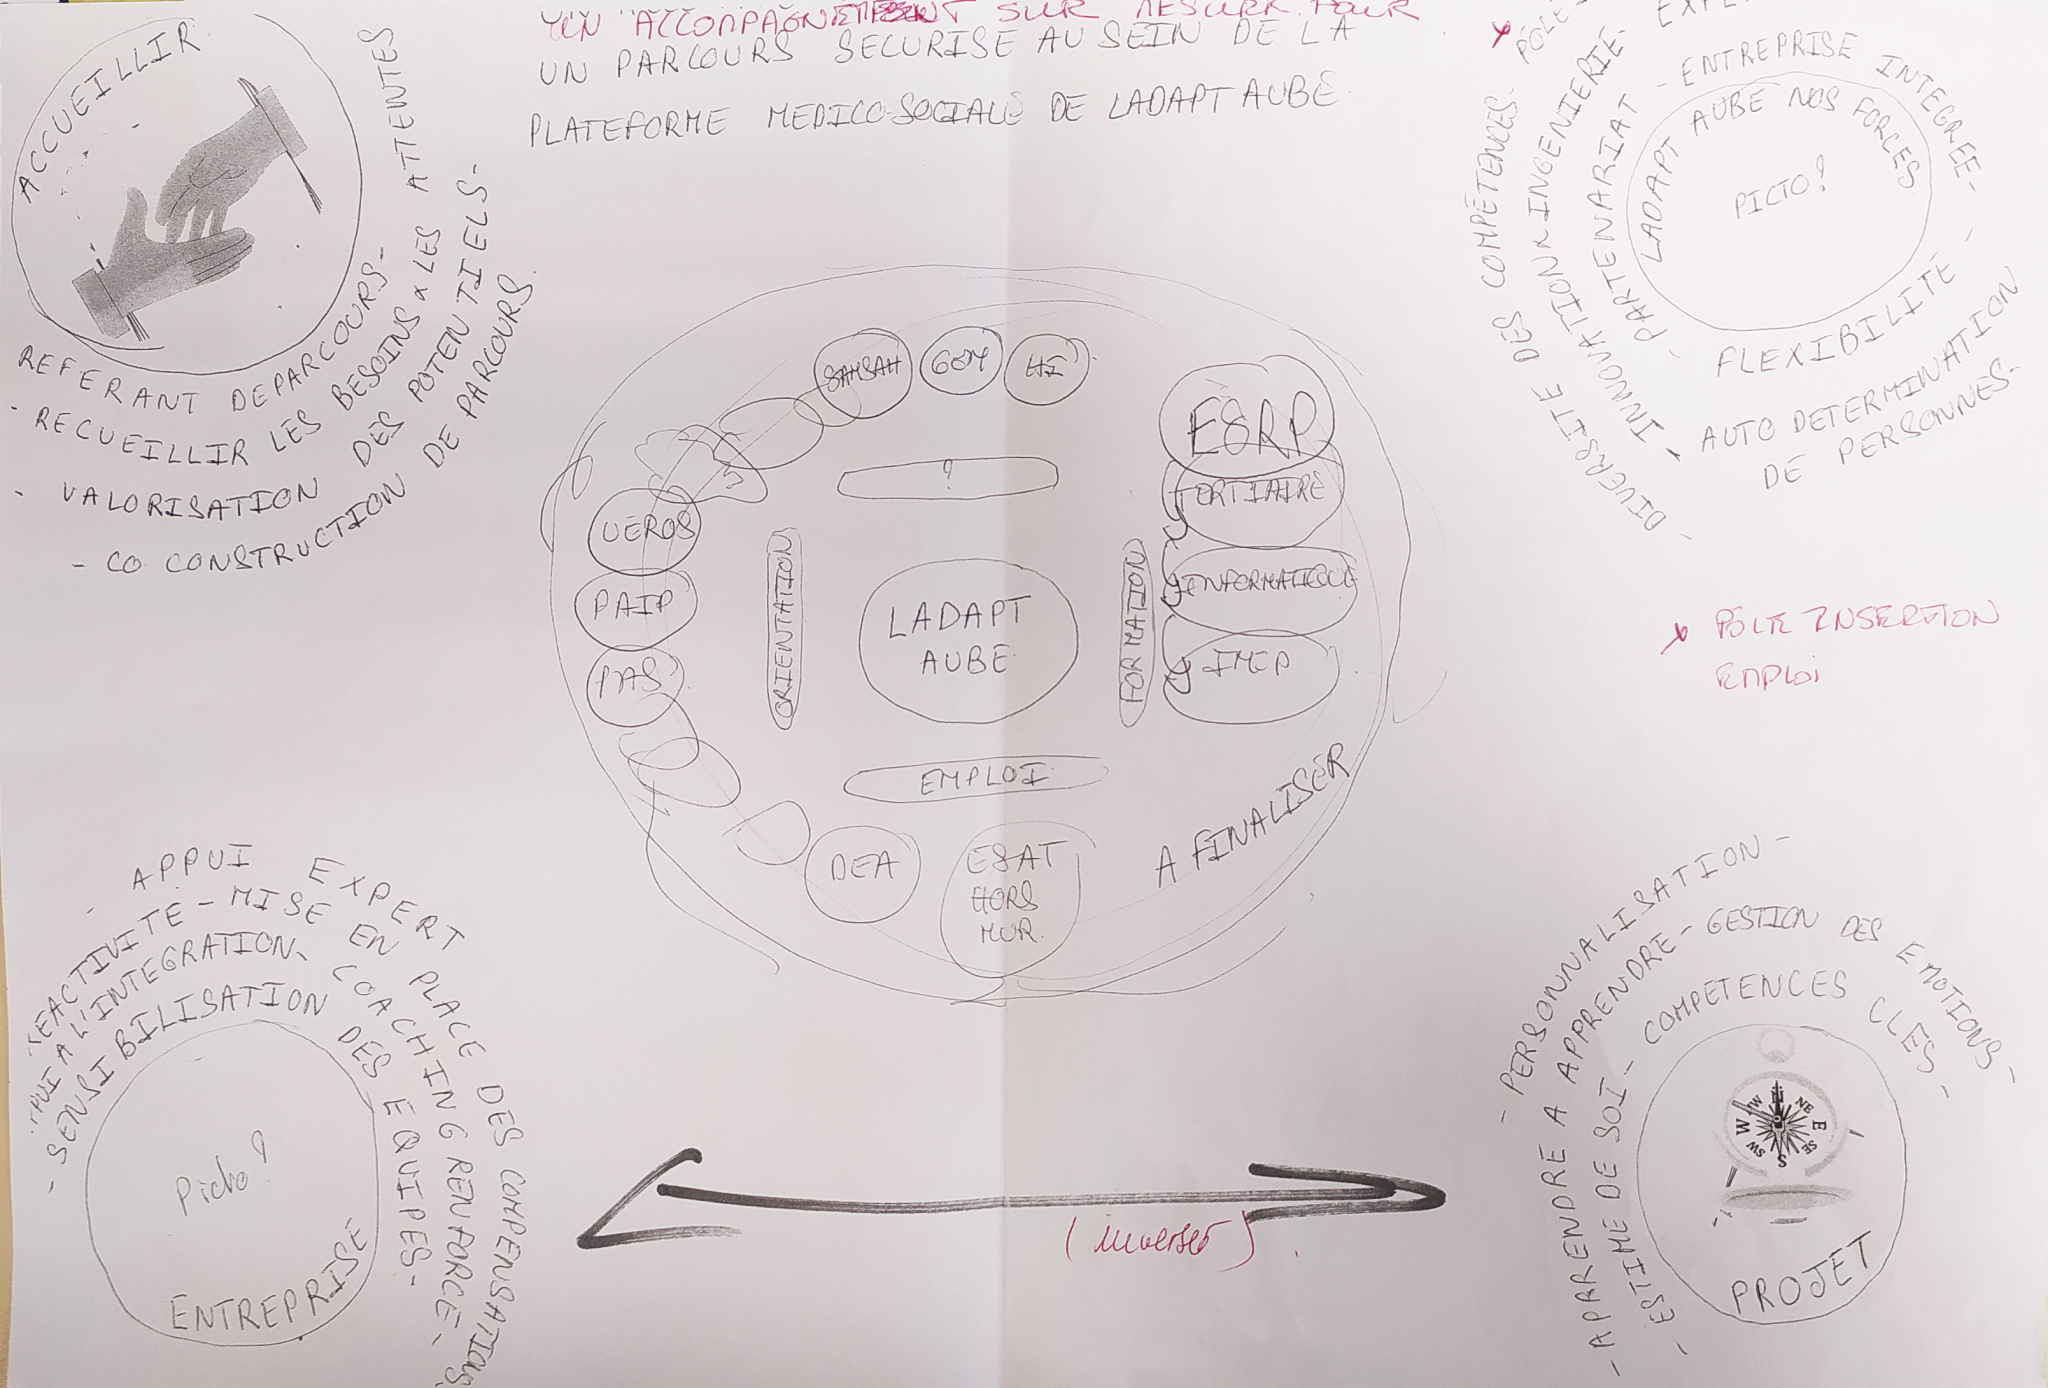 UN ACCOMPAGNEMENT SUR MESURE POUR
UN PARCOURS SECURISE AU SEIN DE LA
PLATEFORME MEDICO-SOCIALE DE LADAPT AUBE
ACCUEILLIR
REFERANT DE PARCOURS-
- RECUEILLIR LES BESOINS & LES ATTENTES
- VALORISATION DES POTENTIELS-
- CO CONSTRUCTION DE PARCOURS.
* PÔLE
LADAPT AUBE NOS FORCES
PICTO?
- PARTENARIAT - ENTREPRISE INTEGREE-
- INNOVATION & INGENIERIE-
- DIVERSITE DES COMPÉTENCES-
FLEXIBILITE -
AUTO DETERMINATION
DE PERSONNES-
* PÔLE INSERTION
EMPLOI
SAMSAH
GEM
HI
?
ESRP
TERTIAIRE
INFORMATIQUE
IMEP
FORMATION
UEROS
PAIP
PAS
ORIENTATION
LADAPT
AUBE
EMPLOI
DEA
ESAT
HORS
MUR.
A FINALISER
- APPUI EXPERT
REACTIVITÉ - MISE EN PLACE DES COMPENSATIONS
APPUI A L'INTEGRATION- COACHING RENFORCE-
- SENSIBILISATION DES EQUIPES-
Picto?
ENTREPRISE
(inverser).
- PERSONNALISATION-
- APPRENDRE A APPRENDRE - GESTION DES EMOTIONS-
- ESTIME DE SOI - COMPETENCES CLES-
N
NE
E
SE
S
SW
W
PROJET